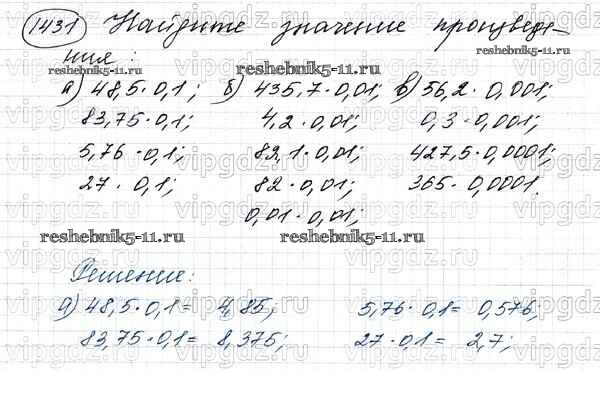 1431 Найдите значение произведе-
ния:
reshebnik5-11.ru
reshebnik5-11.ru
а) 48,5 · 0,1; б) 435,7 · 0,01; в) 56,2 · 0,001;
83,75 · 0,1; 4,2 · 0,01; 0,3 · 0,001;
5,76 · 0,1; 82,1 · 0,01; 427,5 · 0,0001;
27 · 0,1; 82 · 0,01; 365 · 0,0001.
0,01 · 0,01;
reshebnik5-11.ru
reshebnik5-11.ru
Решение:
а) 48,5 · 0,1 = 4,85; 5,76 · 0,1 = 0,576;
83,75 · 0,1 = 8,375; 27 · 0,1 = 2,7;